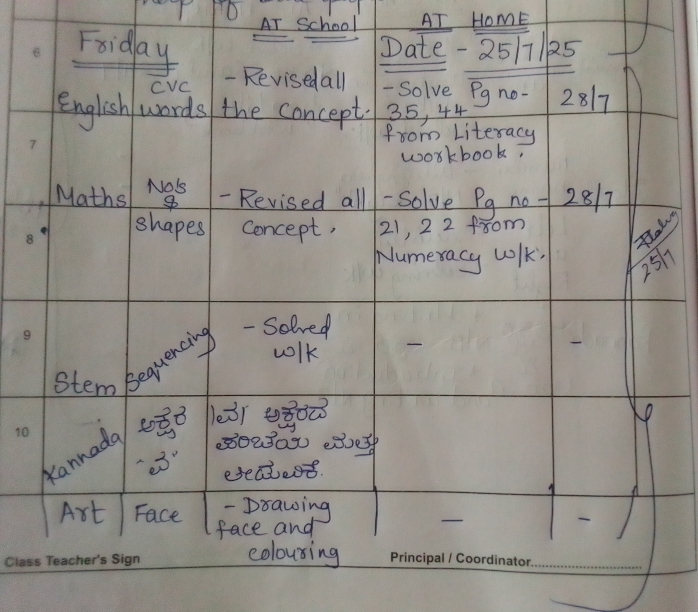 help of
AT School
AT HOME
6
Friday
Date - 25/7/25
English
CVC
words
- Revised all
the concept.
- Solve Pg no-
35, 44
from Literacy
workbook.
28/7
7
Maths
No's
&
shapes
- Revised all
concept.
- Solve Pg no -
21, 22 from
Numeracy w/k.
28/7
8
25/7
9
Stem
Sequencing
- Solved
w/k
-
-
10
Kannada
ಅಕ್ಷರ
"ವ"
/ವ/ ಅಕ್ಷರದ
ಪರಿಚಯ ಮತ್ತು
ಓದುವಿಕೆ.
Art
Face
- Drawing
face and
colouring
-
-
Class Teacher's Sign
Principal / Coordinator